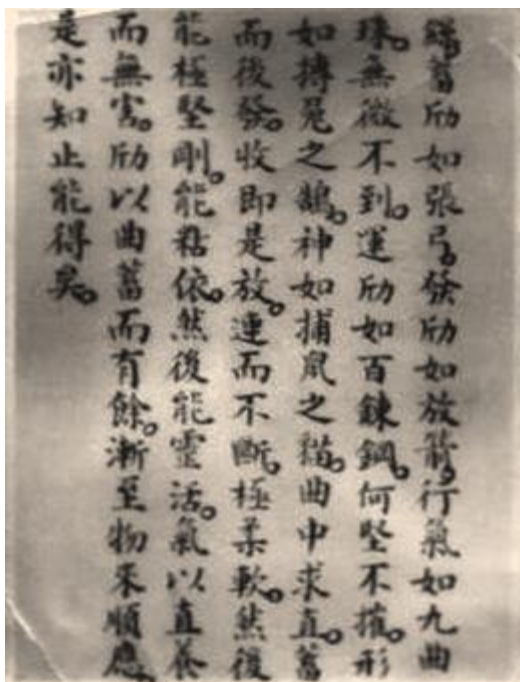 蓄劤如張弓。發劤如放箭。行氣如九曲
珠。無微不到。運劤如百鍊鋼。何堅不摧。形
如搏兔之鶻。神如捕鼠之貓。曲中求直。蓄
而後發。收即是放。連而不斷。極柔軟。然後
能極堅剛。能粘依。然後能靈活。氣以直養
而無害。劤以曲蓄而有餘。漸至物來順應。
是亦知止能得矣。